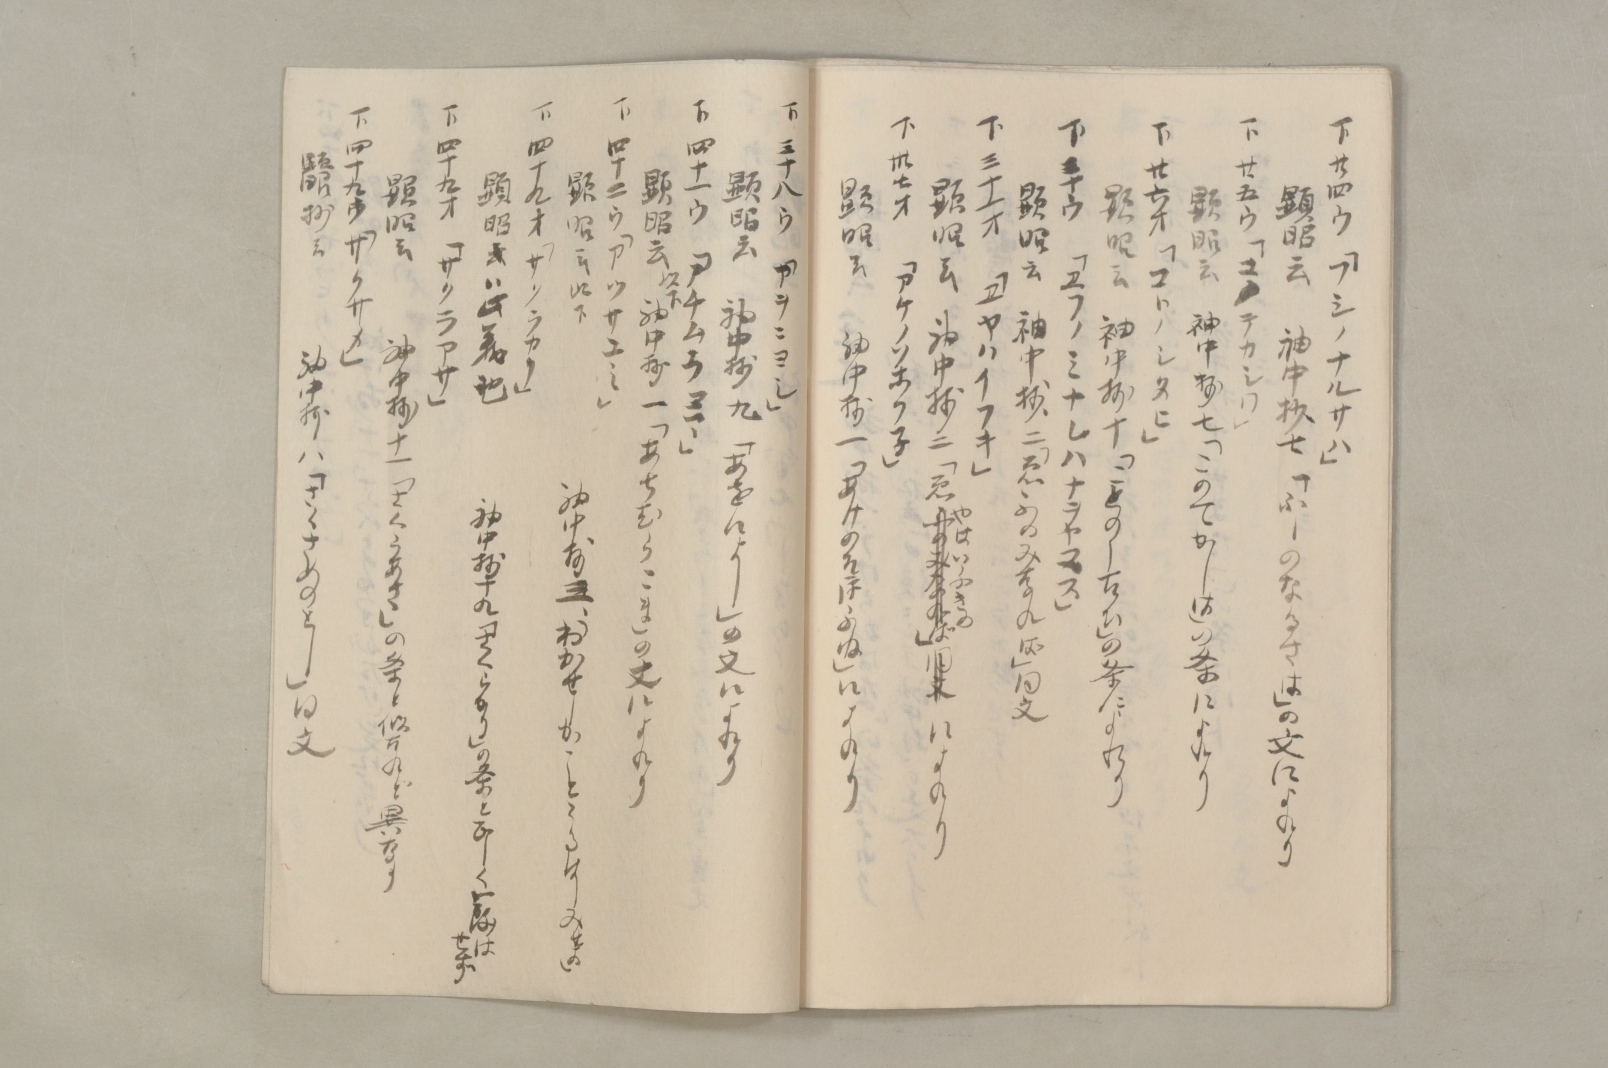 下廿四ウ「フシノナルサハ」
顕昭云　袖中抄七「ふしのなるさは」の文によれり
下廿五ウ「コノテカシワ」
顕昭云　袖中抄七「このてかしは」の条によれり
下廿六オ「コトノシタヒ」
顕昭云　袖中抄十「ことのしたひ」の条によれり
下三十ウ「ヱフノミナレハナラヤスス」
顕昭云　袖中抄二　同文
下三十一オ「ヱヤハイフキ」
顕昭云　袖中抄二「ゑやはいふきの」によれり
下卅七オ「アケノソホフ子」
顕昭云　袖中抄一「あけのそほふね」によれり
下三十八ウ「アヲニヨシ」
顕昭云　袖中抄九「あをによし」の文によれり
下四十一ウ「アチムラコマ」
顕昭云以下　袖中抄一「あちむらこま」の文によれり
下四十二ウ「アツサユミ」
顕昭云以下　袖中抄三、
下四十九オ「サクラカリ」
顕昭云ハ此義也　袖中抄十九「さくらかり」の条と同しく
下四十九オ「サクラアサ」
顕昭云　袖中抄十一「さくらあさ」の条と似たれど異なり
下四十九ウ「サクサメ」
顕昭抄云　袖中抄八「さくさめのとし」同文